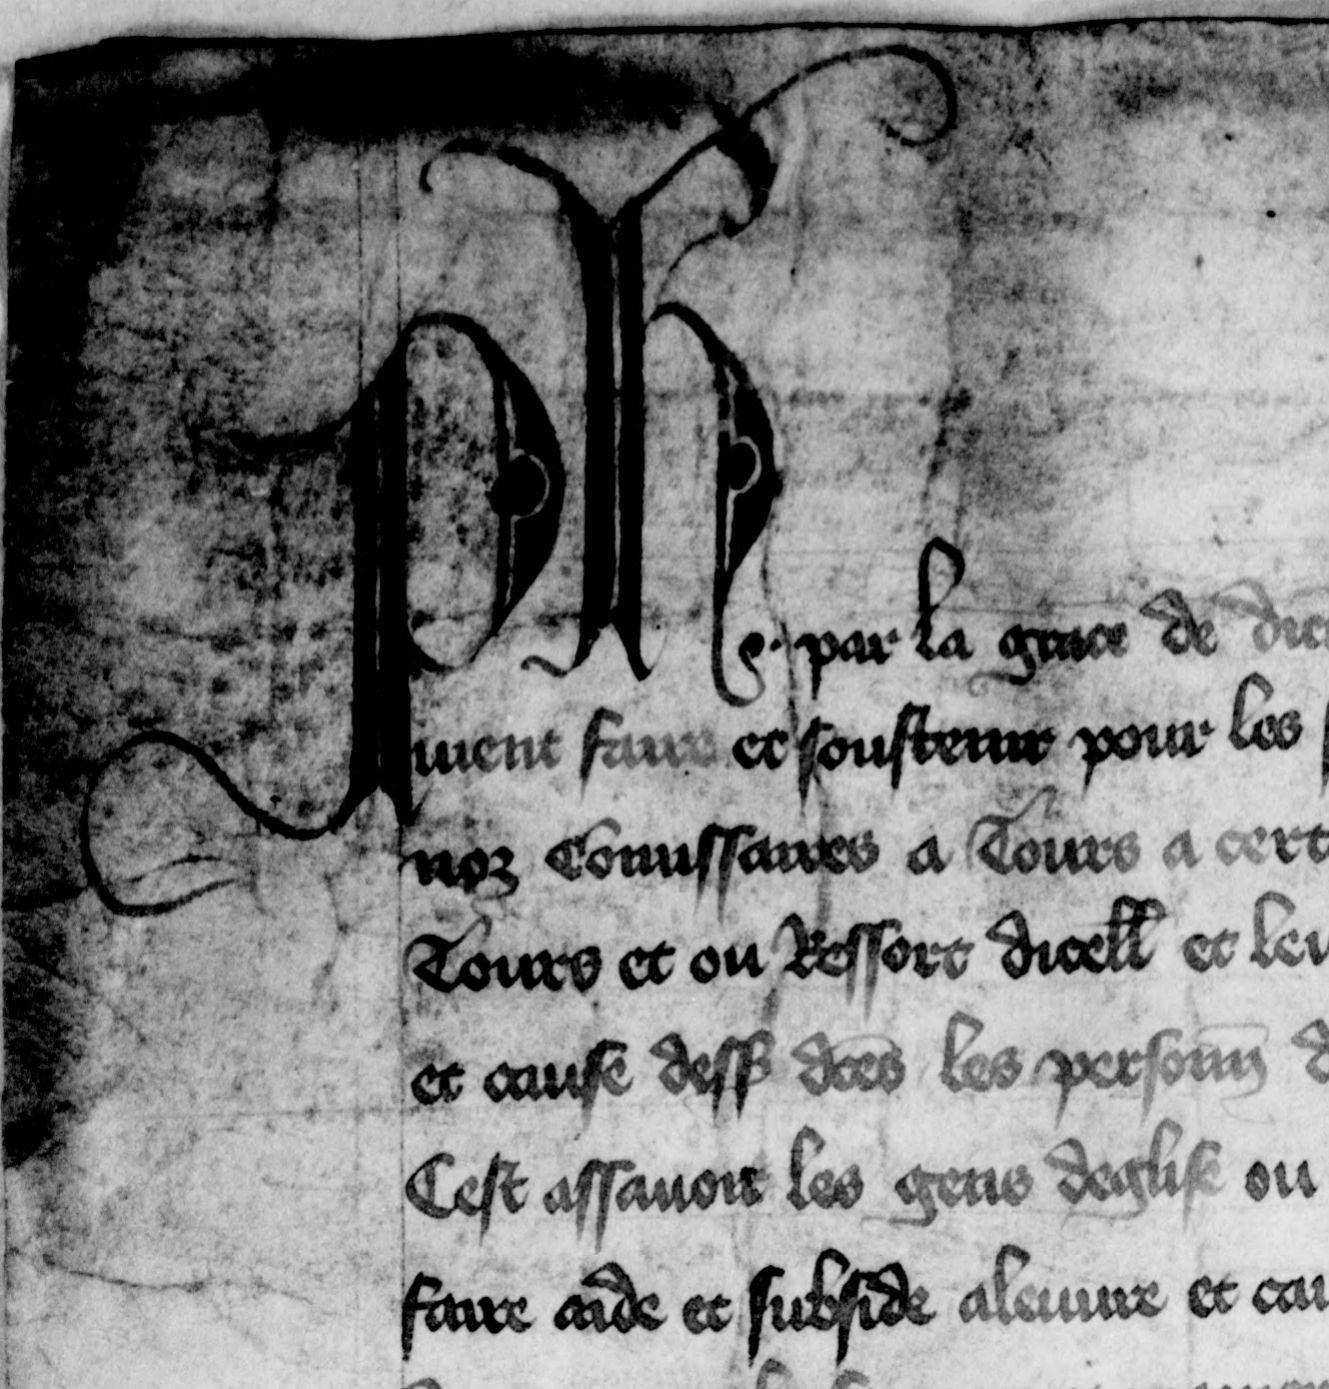 Phe. par la grace de dieu
uient faire et soustenir pour les
noz Comissaires a Tours a cert
Tours et ou Ressort dicell et leu
et cause dess dces les personn d
Cest assavoir les gens deglise ou
faire aide et subside aleuure et cau